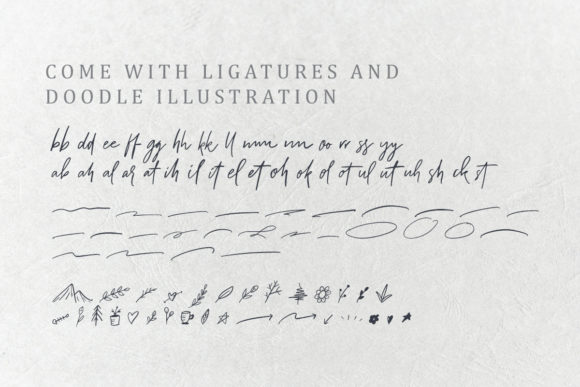 COME WITH LIGATURES AND
DOODLE ILLUSTRATION
bb dd ee ff gg hh kk ll mm nn oo rr ss yy
ab ah al ar at ih il it el et oh ok ol ot ul ut uh sh ck st